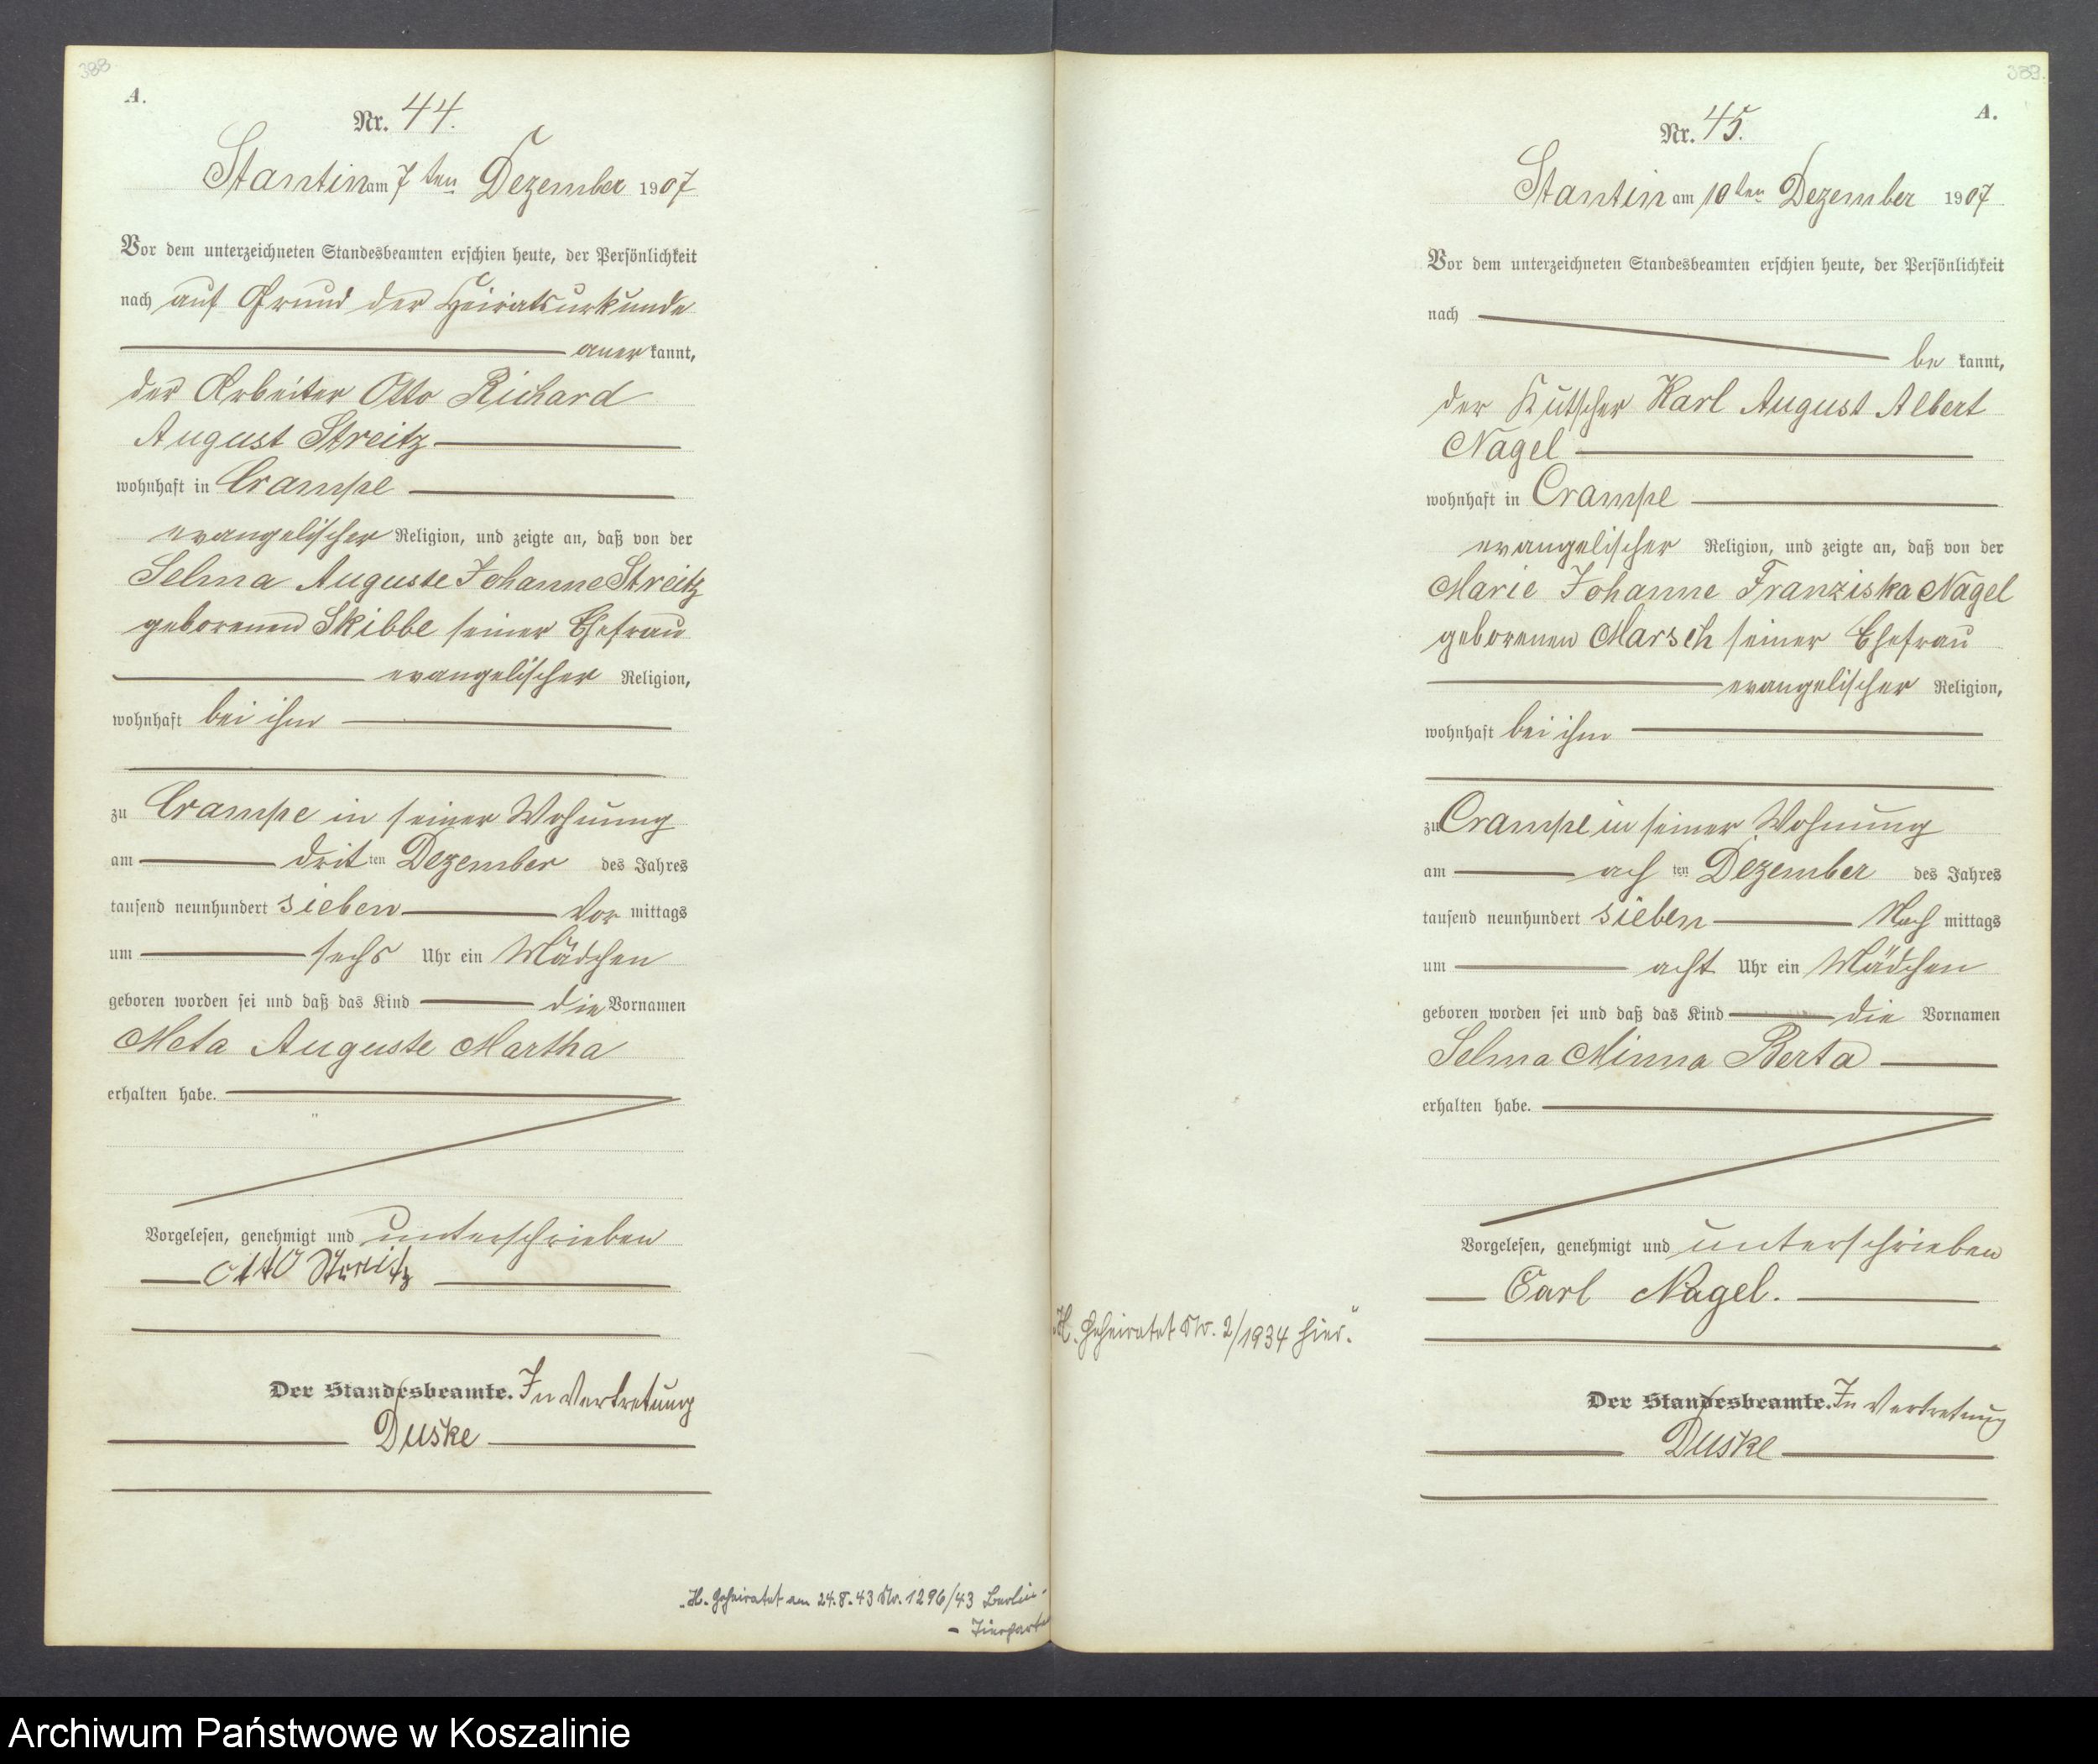 388
A.
Nr. 44.
Stantin am 7ten Dezember 1907
Vor dem unterzeichneten Standesbeamten erschien heute, der Persönlichkeit
nach auf Grund der Heiratsurkunde
anerkannt,
der Arbeiter Otto Richard
August Streitz
wohnhaft in Crampe
evangelischer Religion, und zeigte an, daß von der
Selma Auguste Johanne Streitz
geborenen Skibbe seiner Ehefrau
evangelischer Religion,
wohnhaft bei ihm
zu Crampe in seiner Wohnung
am dritten Dezember des Jahres
tausend neunhundert sieben Vormittags
um sechs Uhr ein Mädchen
geboren worden sei und daß das Kind die Vornamen
Meta Auguste Martha
erhalten habe.
Vorgelesen, genehmigt und unterschrieben
Otto Streitz
Der Standesbeamte. In Vertretung
Duske
H. Geheiratet am 24.8.43 Nr. 1296/43 Berlin-
- Tiergarten
389.
A.
Nr. 45.
Stantin am 10ten Dezember 1907
Vor dem unterzeichneten Standesbeamten erschien heute, der Persönlichkeit
nach
bekannt,
der Kutscher Karl August Albert
Nagel
wohnhaft in Crampe
evangelischer Religion, und zeigte an, daß von der
Marie Johanne Franziska Nagel
geborenen Marsch seiner Ehefrau
evangelischer Religion,
wohnhaft bei ihm
zu Crampe in seiner Wohnung
am achten Dezember des Jahres
tausend neunhundert sieben Nachmittags
um acht Uhr ein Mädchen
geboren worden sei und daß das Kind die Vornamen
Selma Minna Berta
erhalten habe.
Vorgelesen, genehmigt und unterschrieben
Carl Nagel.
"H. Geheiratet Nr. 2/1934 hier."
Der Standesbeamte. In Vertretung
Duske
Archiwum Państwowe w Koszalinie